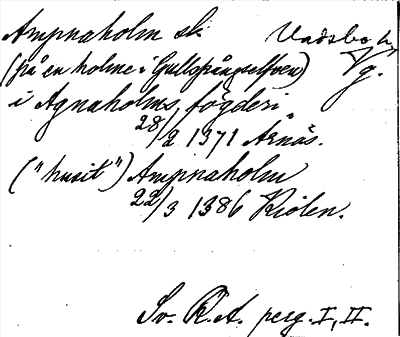 Ampnaholm sk. Vadsbo h.
(på en holme i Gullspångselfven) Vg.
i Agnaholms fögderi
28/2 1371 Årnäs.
("husit") Ampnaholm
22/3 1386 Kiölen.
Sv. R.A. perg. I, II.